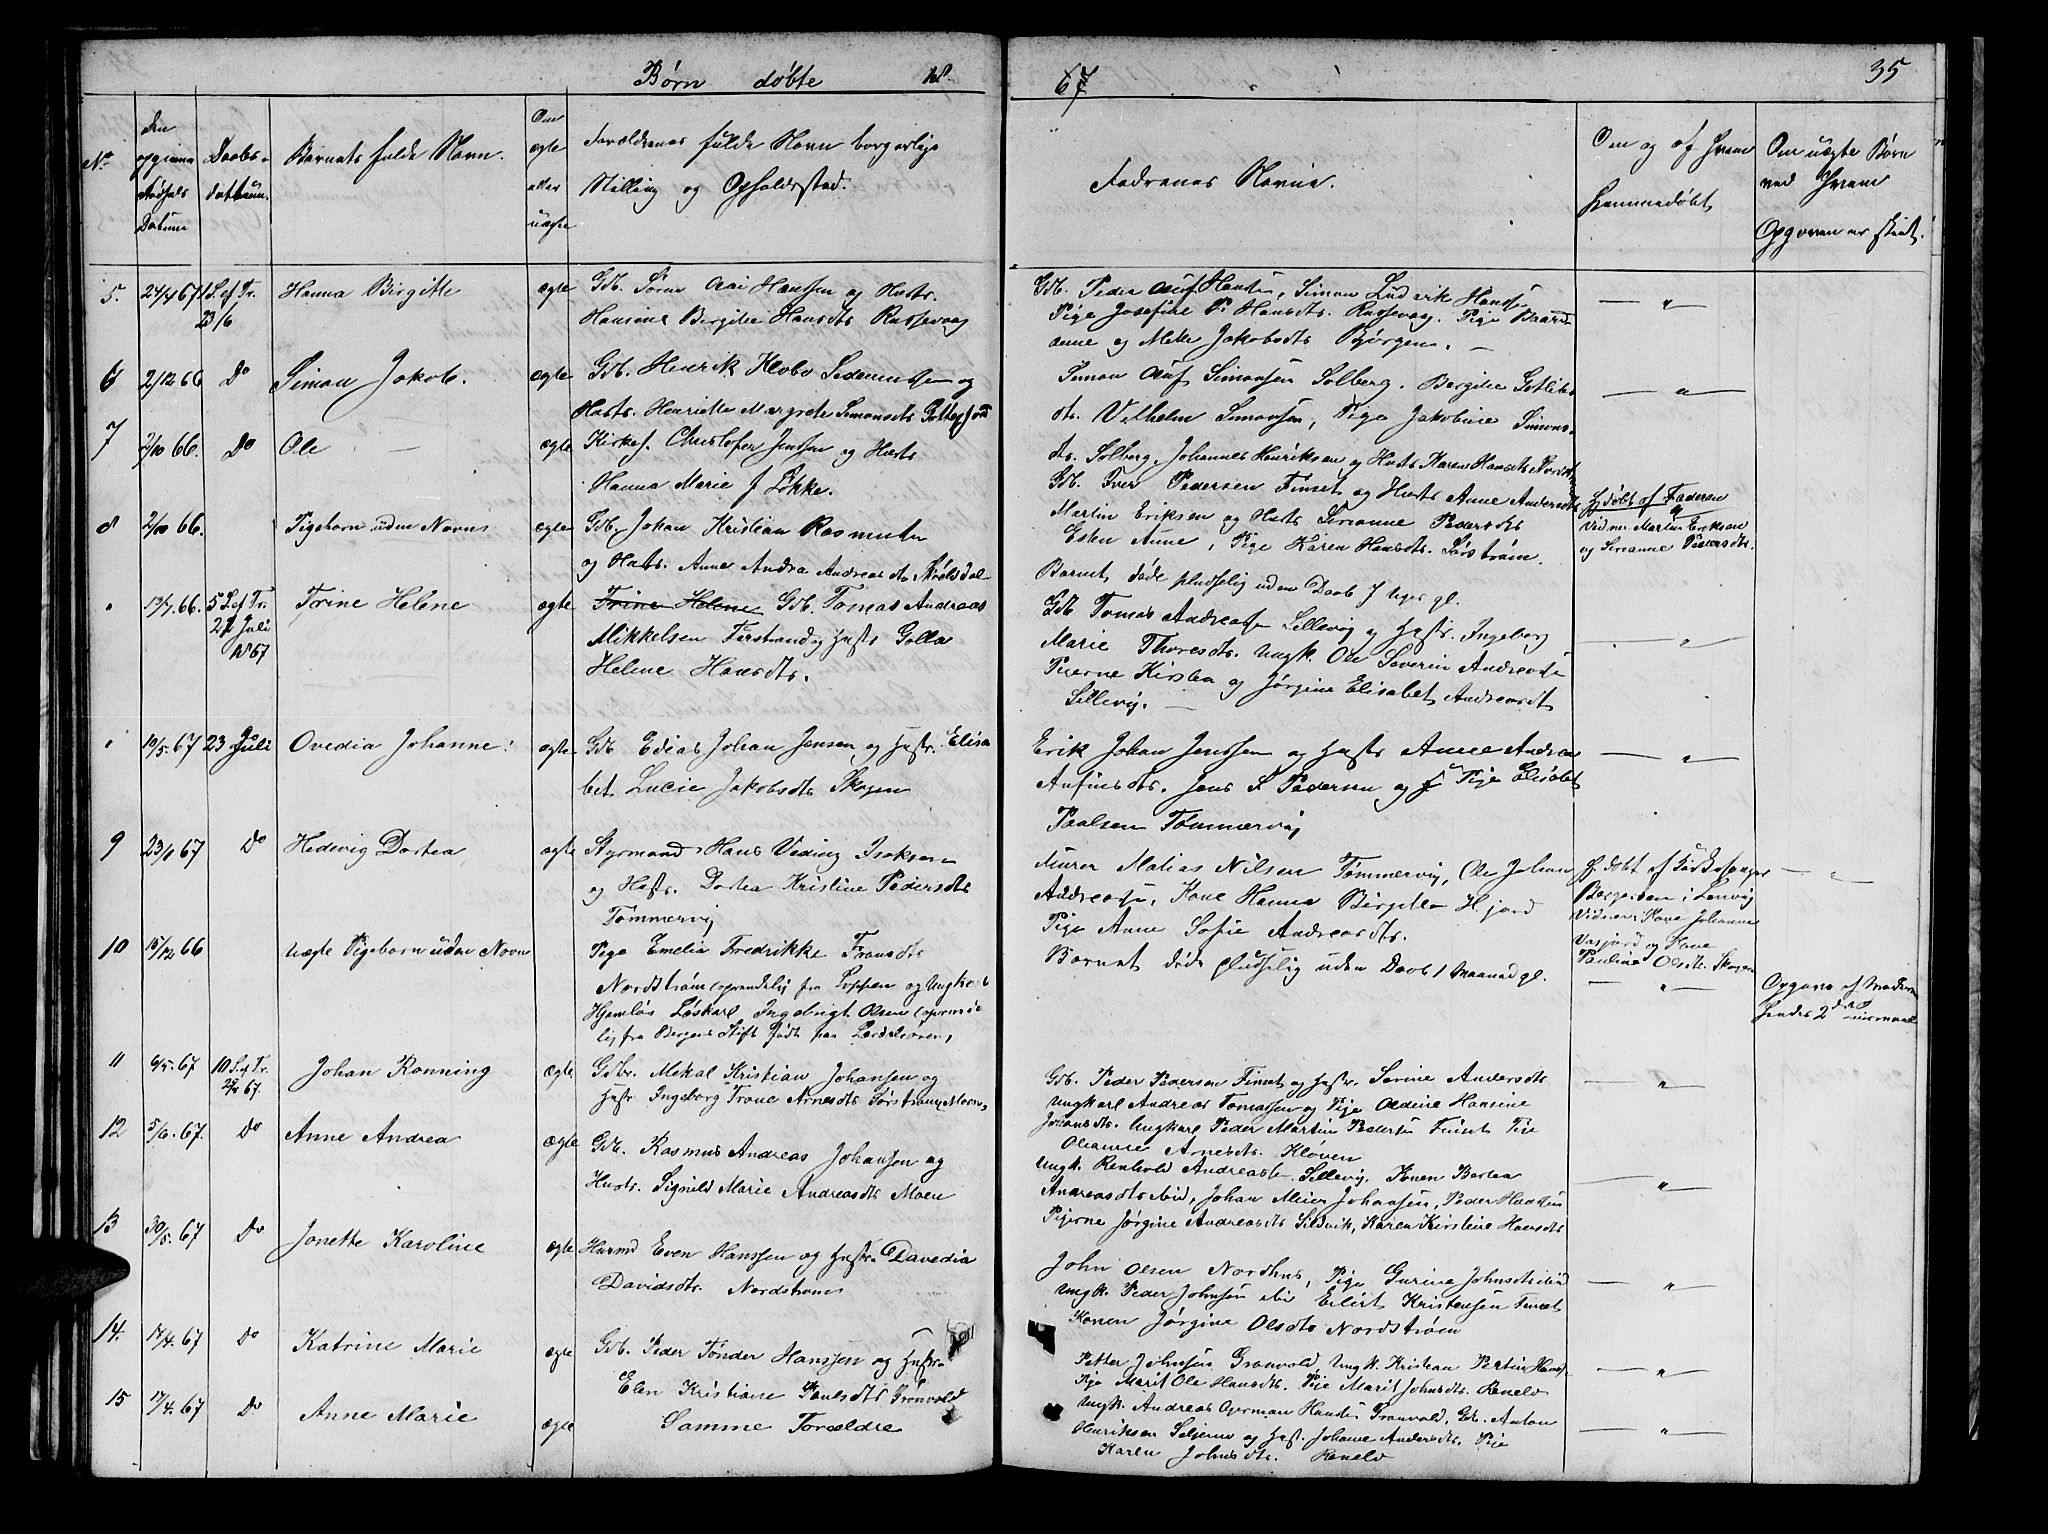 Børn døbte 18
67
35
No
den
opgivne
Fødsels
Datum
Daabs-
datum.
Barnets fulde Navn.
Om
ægte
eller
uægte
Forældrenes fulde Navn borgerlige
Stilling og Opholdssted.
Faddernes Navne.
Om og af hvem
hjemmedøbt
Om uægte Børn
ved hvem
Opgaven er skeet.
5. 24/4 67 1 S. ef Tr.
23/6
Hanna Birgitte
ægte
Gdb. Søren Hansen og Hustr.
Hansine Birgitte Hansdtr Russevaag
Gdb. Peder Hansen, Simon Ludvik Hansen
Pige Josefine P. Hansdtr. Russevaag. Pige
anne og Mette Jakobsdtr Bjørgen.
— " —
6 2/12 66 Do Simon Jakob.
ægte
Gdb. Henrik Klobo og
Hustr. Henriette Margrete Simonsdtr Gottesjord
Simon Oluf Simonsen Solberg. Bergitte
dtr. Vilhelm Simonsen, Pige Jakobine Simons-
dtr. Solberg. Johannes Henriksen og Hustr Karen Hansdtr
— " —
7 2/10 66. Do Ole —
ægte
Kirkes. Christofer Jenssen og Hustr
Hanna Marie f Løkke.
Gdb. Iver Pedersen Finset og Hustr Anne Andersdtr
Martin Eriksen og Hustr Sirianne Pedersdtr
Esten Anne, Pige Karen Hansdtr. Sørstrøm.
8 2/10 66. Pigebarn uden Navn
ægte
Gdb. Johan Kristian Rasmusen
og Hustr. Anne Andrea Andreasdtr
Barnet døde pludselig uden Daab 7 Uger gl.
Hjdøbt af Faderen
Vidner Martin Eriksen
og Sirianne Pedersdtr.
" 13/7 66. 5 S. ef Tr.
21 Juli
1867
Trine Helene
ægte
Trine Helene Gdb. Tomas Andreas
Mikkelsen Finstrand og Hustr Golla
Helene Hansdtr.
Gdb Tomas Andreassen Sillevig og Hustr. Ingeborg
Marie Thoresdtr. Ungk. Ole Severin Andreassen
Pigerne Kirsten og Jørgine Elisabet Andreasdt
Sillevig. —
— " —
" 10/5. 67 23 Juli
Ovedia Johanne.
ægte
Gdb Edias Johan Jensen og Hustr. Elisa
bet Lucie Jakobsdtr Skogen
Erik Johan Jenssen og Hustr Anne Andrea
Anfinsdtr. Jens S Pedersen og Pige Elisabet
Paulsen Tømmervig
— " —
9 23/1 67 Do Hedevig Dortea
ægte
Styrmand Hans Viding Isaksen
og Hustr. Dortea Kristine Pedersdtr
Tømmervig
Murer Matias Nilsen Tømmervig, Ole Johan
Andreassen, Kone Hanna Birgitte Hjord
Pige Anne Sofie Andreasdtr.
Hj døbt af Kirkesanger
Borgersen i Lenvig
Vidner: Kone Johanne
Vasjord og Kone
Pauline Olsdtr. Skogen
— " —
10 15/12 66
uægte Pigebarn uden Navn
Pige Emelia Fredrikke Fransdtr
Nordstrøm (oprindelig fra Loppen og Ungkarl
Hjemløs Løskarl Ingebrigt Olsen (oprinde
lig fra Bergens Stift født paa Lærdalsøren)
Barnet døde pludselig uden Daab 1 Maaned gl.
— " —
Opgave af Moderen
hendes 2det
Leiermaal
11 6/5. 67 10 S. ef Tr.
25/8 67.
Johan Rønning
ægte
Gdbr. Mekal Kristian Johansen og
Hustr Ingeborg Trone Arnesdtr Sørstrøm, Moen,
Gdb. Peder Pedersen Finset og Hustr. Serine Andersdtr
Ungkarl Andreas Tomassen og Pige Oldine Hansine
Johansdtr. Ungkarl Peder Martin Pedersen Finset Pige
Oleanne Arnesdtr. Kløven
— " —
12 5/6. 67. Do Anne Andrea
ægte
Gdb. Rasmus Andreas Johansen og
Hustr. Signild Marie Andreasdtr Moen
Ungk. Renhold Andreassen Sillevig. Konen Bertea
Andreasdtr ibid, Johan Meier Johansen, Peder Hansen
Pigerne Jørgine Andreasdtr Sildvik, Karen Kirstine Hansdtr
— " —
13 30/5. 67 Do Jonette Karoline
ægte
Husmd Even Hanssen og Hustr. Davedia
Davidsdtr. Nordstrøm
John Olsen Nordhus, Pige Gurine Johnsdtr ibid
Ungk. Peder Johnsen ibid Eilert Kristensen Finset
Konen Jørgine Olsdtr Nordstrøm
— " —
14. 17/4. 67 Do Katrine Marie
ægte
Gdb. Peder Tønder Hanssen og Hustr.
Elen Kristiane Paulsdtr Grønvold
Petter Johnsen Grønvold, Ungk. Kristian Martin
Pige Marit Ole Hansdtr. Pige Marit Johnsdtr. Renelv
— " —
15 17/4. 67 Do Anne Marie
ægte
Samme Forældre
Ungk. Andreas German Hansen Grønvold, Gdb. Anton
Henriksen Seljerne og Hustr. Johanne Andersdtr. Pige
Karen Johnsdtr. Renelv
— " —